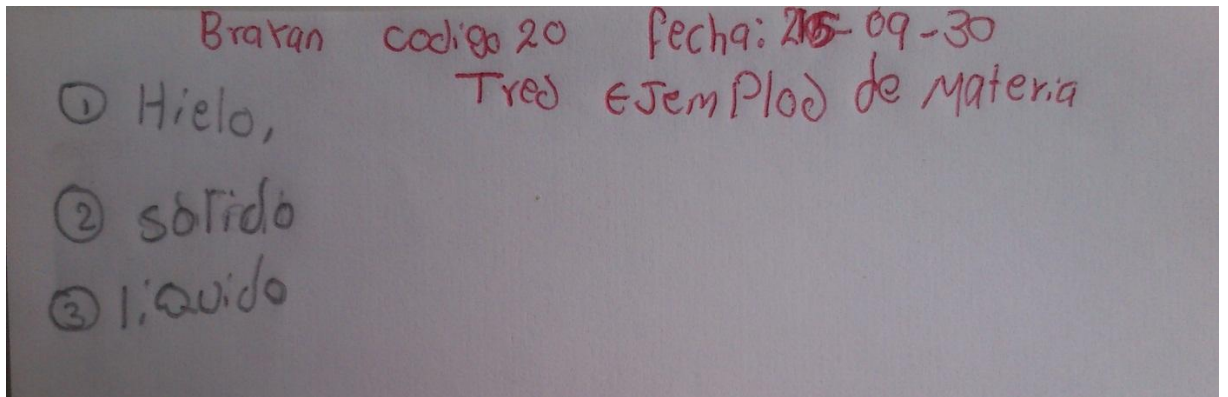 Brayan codigo 20 fecha: 215-09-30
Tres EJemPlos de Materia
① Hielo,
② sólido
③ líQuido